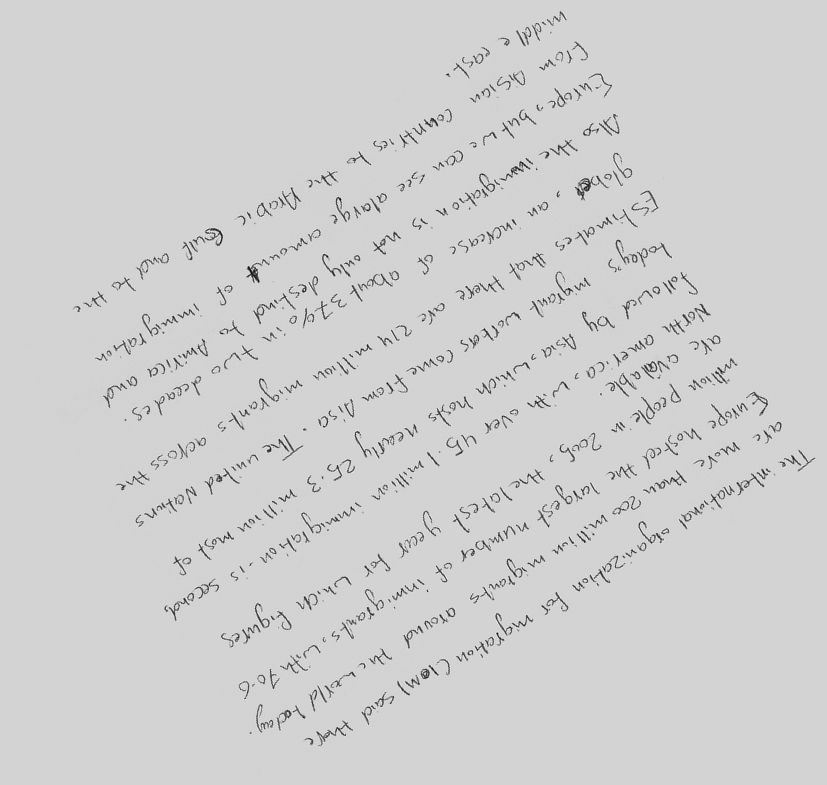 The international organization for migration (IOM) said there
are more than 200 million migrants around the world today.
Europe hosted the largest number of immigrants, with 70.6
million people in 2005, the latest year for which figures
are avaiable.
North america, with over 45.1 million immigration. is second,
followed by Asia, which hosts nearly 25.3 million most of
today's migrant workers come from Aisa. The united Nations
Estimates that there are 214 million migrants across the
globe, an increase of about 37% in two decades.
Also the immigration is not only destind to Amirica and
Europe, but we can see alarge amount of immigration
from Asian countries to the Arabic Gulf and to the
middle east.